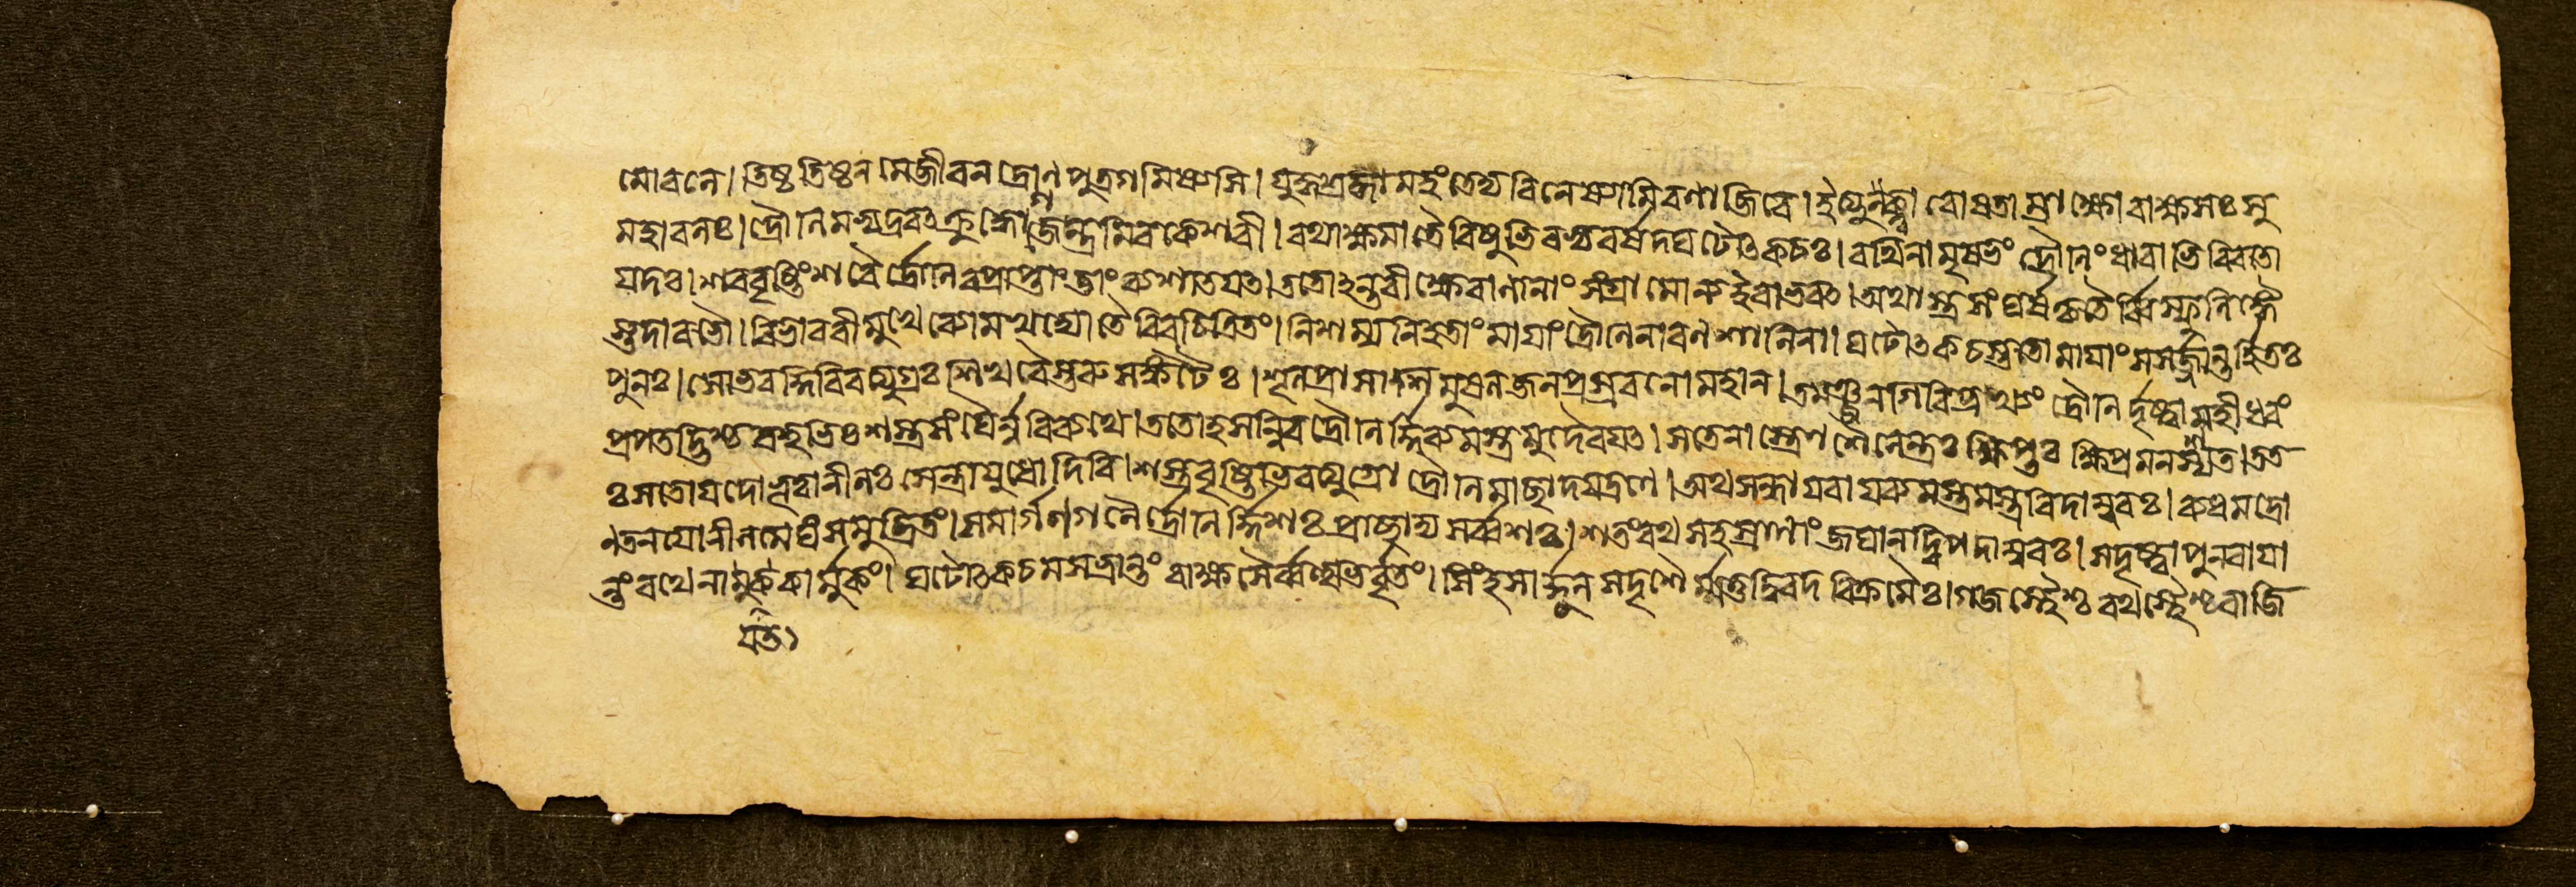 মোবনে। তিষ্ঠ তিষ্ঠন মে জীবন দ্রোণ পুত্রগমিষ্যসি। যুদ্ধশ্রদ্ধামহং তেদ্য বিনেষ্যামি বণাজিবে। ইত্যুক্ত্বা বোষতাম্রাক্ষো বাক্ষসঃ সু
মহাবলঃ। দ্রৌনিমভ্যদ্রবৎ ক্রুদ্ধো গজেন্দ্রমিব কেশবী। বথাক্ষমাত্রৈবিষুভিবভ্যবর্ষদ্ঘটোৎকচঃ। বথিনামৃষভং দ্রৌনিং ধাবাভিবিবতো
যদঃ। শববৃষ্টিং শবৈর্দ্রৌনিবপ্রাপ্তাং তাং ব্যশাতযত। ততোহন্তবীক্ষেবানানাং সংগ্রামোন্যইবাভবৎ। অথাস্ত্রসংঘর্ষকৃতৈর্ব্বিস্ফুলিঙ্গৈ
স্তদাবভৌ। বিভাববীমুখে ব্যোমখদ্যোতৈবিবচিত্রিতং। নিশম্য নিহতাং মাযাং দ্রৌনিনাবণশালিনা। ঘটোৎকচস্ততো মাযাং সসর্জ্জান্তর্হিতঃ
পুনঃ। সোভবদ্গিবিবত্যুগ্রঃ শিখবৈস্তরুসঙ্কটৈঃ। শূলপ্রাসাসিমুষলজলপ্রস্রবনো মহান। তমঞ্জনগিবিপ্রখ্যং দ্রৌনির্দৃষ্ট্বা মহীধবং
প্রপতদ্ভিশ্চ বহুভিঃ শস্ত্রসংঘৈর্নবিব্যথে। ততোহসন্নিব দ্রৌনির্ব্বজ্রমস্ত্রমুদৈবযৎ। সতেনাস্ত্রেণ শৈলেন্দ্রঃ ক্ষিপ্তব ক্ষিপ্রমনশ্যত। তত
ঃ সতোযদোভূত্বানীলঃ সেন্দ্রাযুধো দিবি। শস্ত্রবৃষ্টিভিবত্যুগ্রো দ্রৌনিমাচ্ছাদযদ্রণে। অথসন্ধাযবাযব্যমস্ত্রমস্ত্রবিদাম্ববঃ। ব্যধমদ্রো
ণতনযোনীলমেঘং সমুত্থিতং। সমার্গণগনৈর্দ্রৌনির্দ্দিশঃ প্রাচ্ছাদ্য সর্ব্বশঃ। শতংবথসহস্রাণাং জঘানদ্বিপদাম্ববঃ। সদৃষ্ট্বা পুনবাযা
ন্তং বথেনাযতকার্ম্মুকং। ঘটোৎকচমসম্ভ্রান্তং বাক্ষসৈর্ব্বহুভির্বৃতং। সিংহসার্দ্দূলসদৃশৈর্ম্মত্তদ্বিবদবিক্রমৈঃ। গজস্থৈশ্চ বথস্থৈশ্চ বাজি
যত)